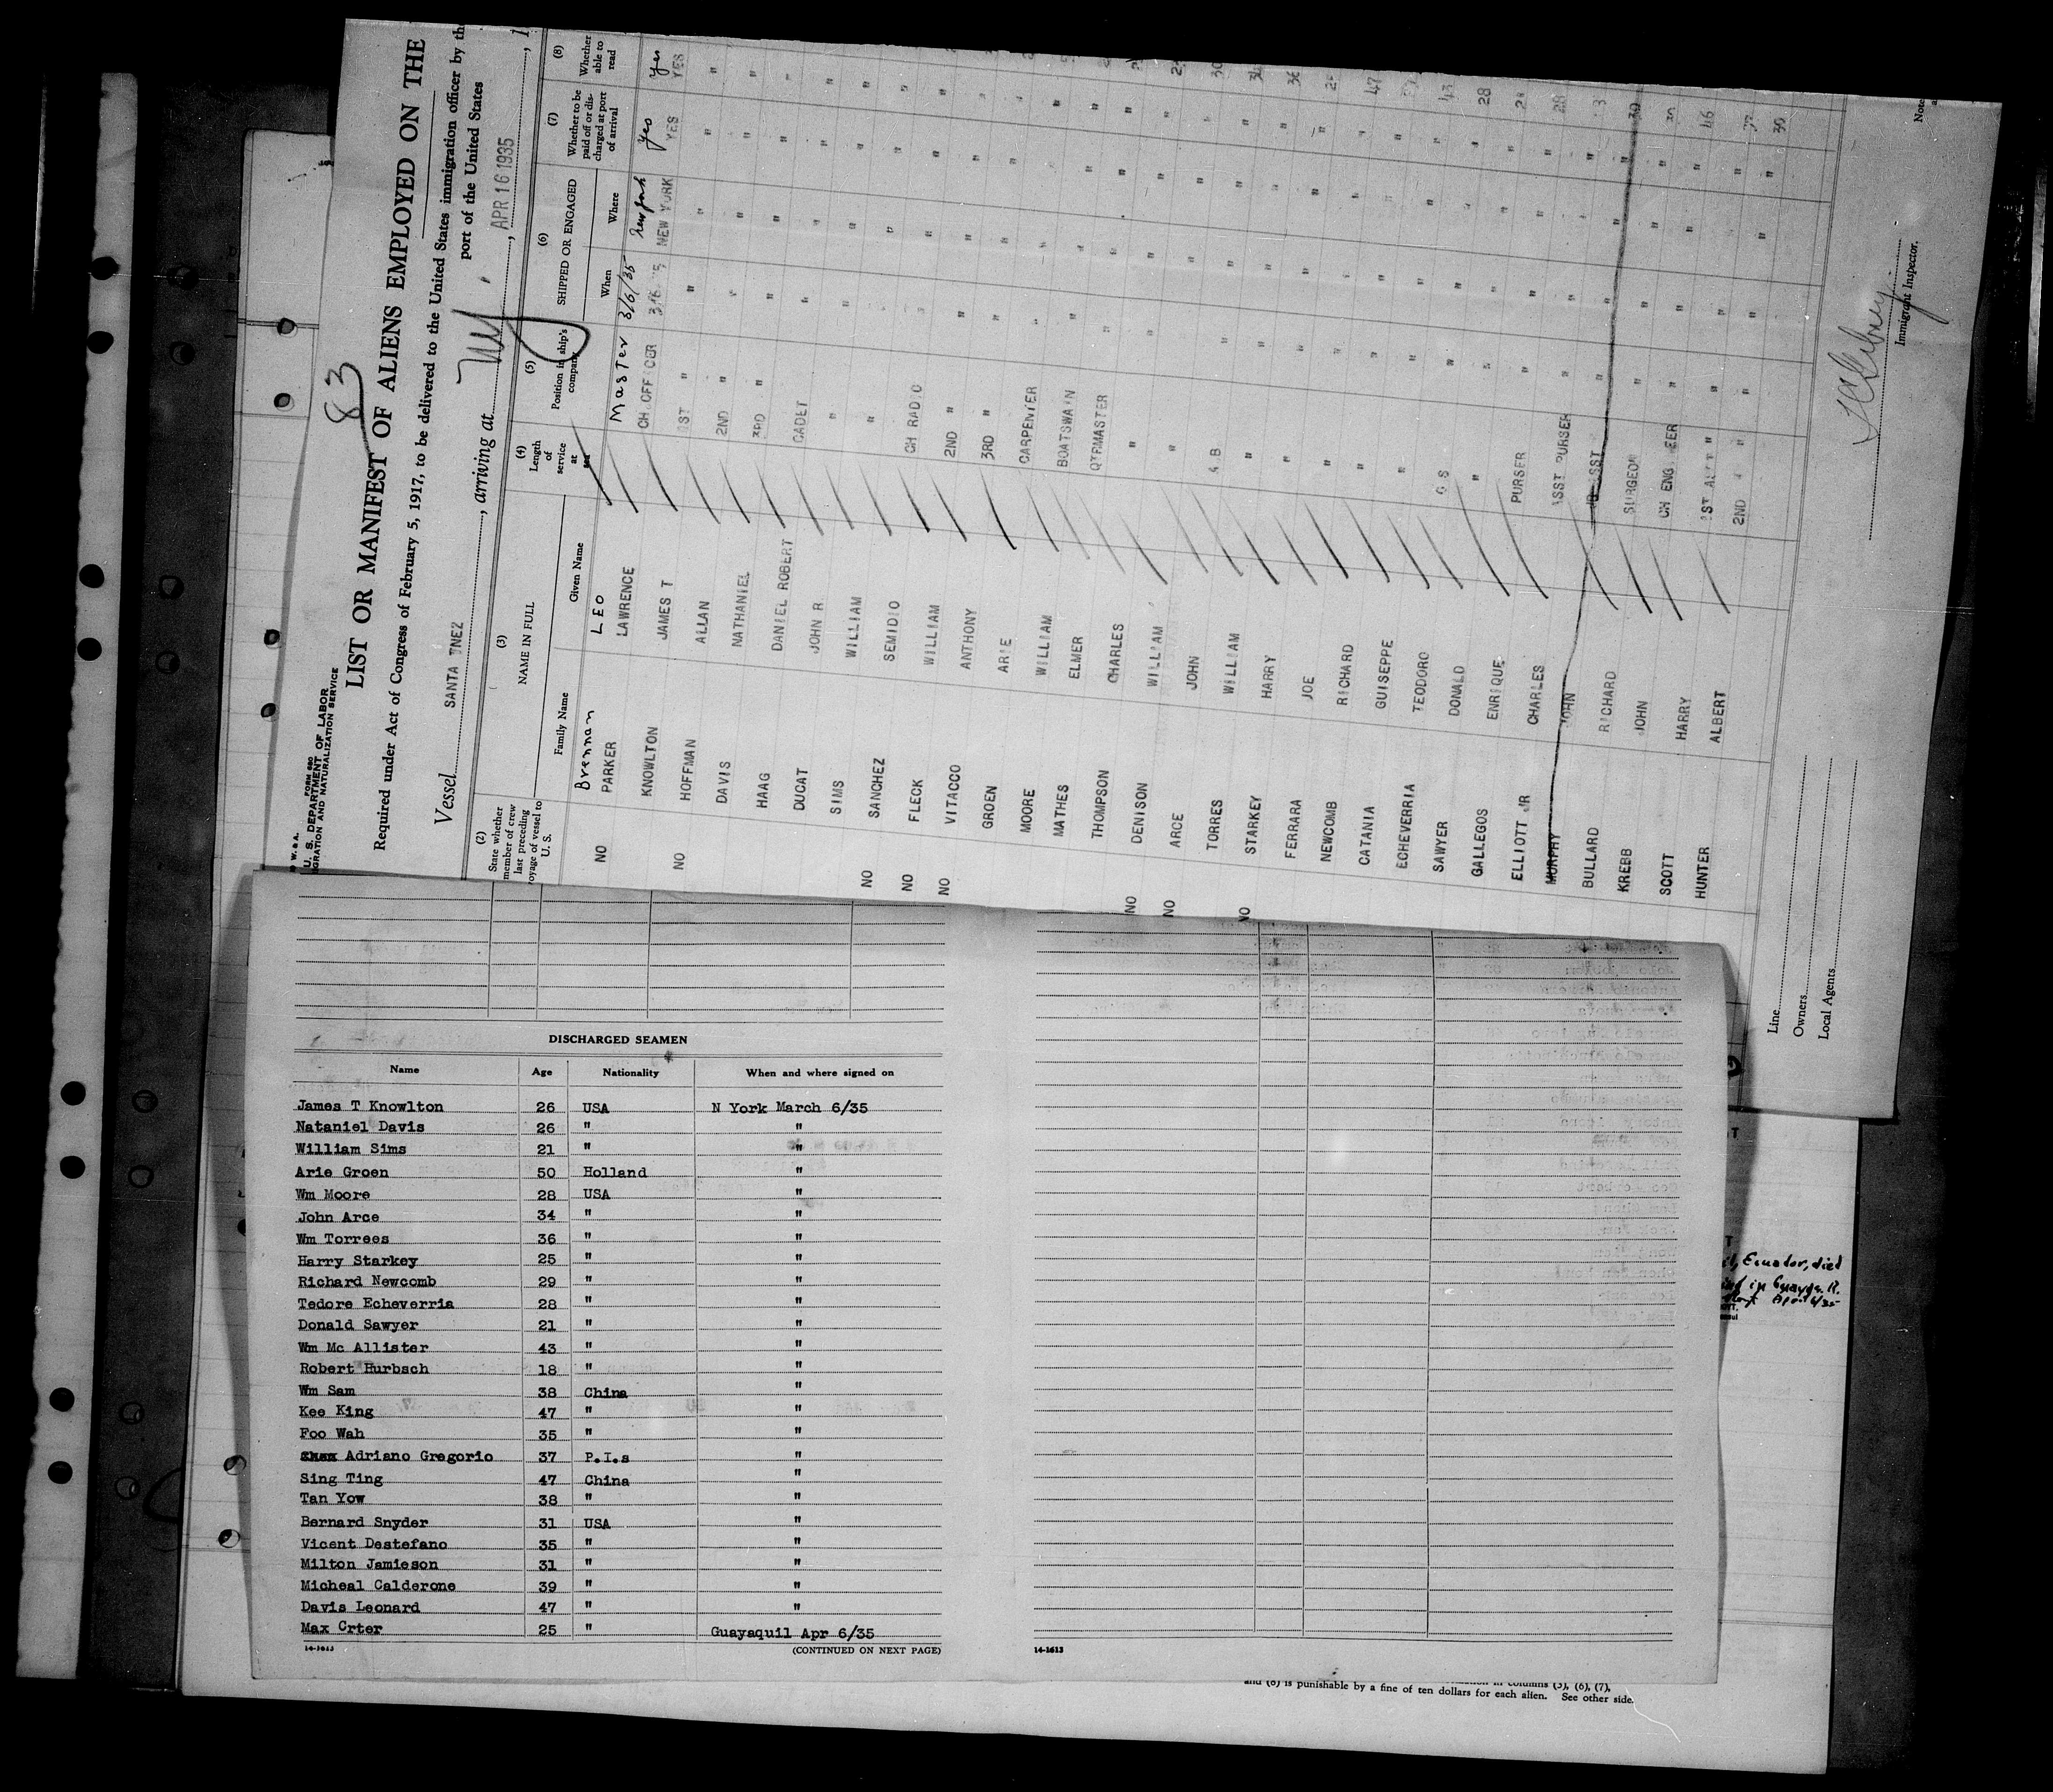 83
FORM 680
U. S. DEPARTMENT OF LABOR
IMMIGRATION AND NATURALIZATION SERVICE
LIST OR MANIFEST OF ALIENS EMPLOYED ON THE
Required under Act of Congress of February 5, 1917, to be delivered to the United States immigration officer by the
port of the United States
Vessel SANTA INEZ, arriving at NY, APR 16 1935, 1
(2) State whether member of crew last preceding voyage of vessel to U. S.
(3) NAME IN FULL
Family Name Given Name
(4) Length of service at sea
(5) Position in ship's company
(6) SHIPPED OR ENGAGED
When Where
(7) Whether to be paid off or discharged at port of arrival
(8) Whether able to read
Brennan LEO Master 3/6/35 New York yes yes
NO PARKER LAWRENCE CH.OFFICER NEW YORK YES YES
KNOWLTON JAMES T 1ST " " " " "
NO HOFFMAN ALLAN 2ND " " " " "
DAVIS NATHANIEL 3RD " " " " "
HAAG DANIEL ROBERT CADET " " " "
DUCAT JOHN R " " " " "
SIMS WILLIAM " " " " "
NO SANCHEZ SEMIDIO CH RADIO " " " "
NO FLECK WILLIAM 2ND " " " " "
NO VITACCO ANTHONY 3RD " " " " "
GROEN ARIE CARPENTER " " " "
MOORE WILLIAM BOATSWAIN " " " "
MATHES ELMER QTRMASTER " " " "
THOMPSON CHARLES " " " " "
NO DENISON WILLIAM " " " " "
NO ARCE JOHN A.B " " " "
TORRES WILLIAM " " " " 30
NO STARKEY HARRY " " " "
FERRARA JOE " " " " 36
NEWCOMB RICHARD " " " "
CATANIA GUISEPPE " " " " 47
ECHEVERRIA TEODORO " " "
SAWYER DONALD " " " 43
GALLEGOS ENRIQUE " " " 28
ELLIOTT JR CHARLES PURSER " " " 28
MURPHY JOHN ASST PURSER " " " 28
BULLARD RICHARD " " "
KREBB JOHN SURGEON " " " 30
SCOTT HARRY CH ENGINEER " " "
HUNTER ALBERT 1ST ASST " " " " 46
2ND " " " "
30
Line
Owners
Local Agents
Immigrant Inspector.
Note
DISCHARGED SEAMEN
Name Age Nationality When and where signed on
James T Knowlton 26 USA N York March 6/35
Nataniel Davis 26 " "
William Sims 21 " "
Arie Groen 50 Holland "
Wm Moore 28 USA "
John Arce 34 " "
Wm Torrees 36 " "
Harry Starkey 25 " "
Richard Newcomb 29 " "
Tedore Echeverria 28 " "
Donald Sawyer 21 " "
Wm Mc Allister 43 " "
Robert Hurbsch 18 " "
Wm Sam 38 China "
Kee King 47 " "
Foo Wah 35 " "
Adriano Gregorio 37 P.I.s "
Sing Ting 47 China "
Tan Yow 38 " "
Bernard Snyder 31 USA "
Vicent Destefano 35 " "
Milton Jamieson 31 " "
Micheal Calderone 39 " "
Davis Leonard 47 " "
Max Crter 25 " Guayaquil Apr 6/35
14-1613 (CONTINUED ON NEXT PAGE)
14-1613
Ecuador, died
in Guayas R.
April 6/35
columns (5), (6), (7),
and (8) is punishable by a fine of ten dollars for each alien. See other side.